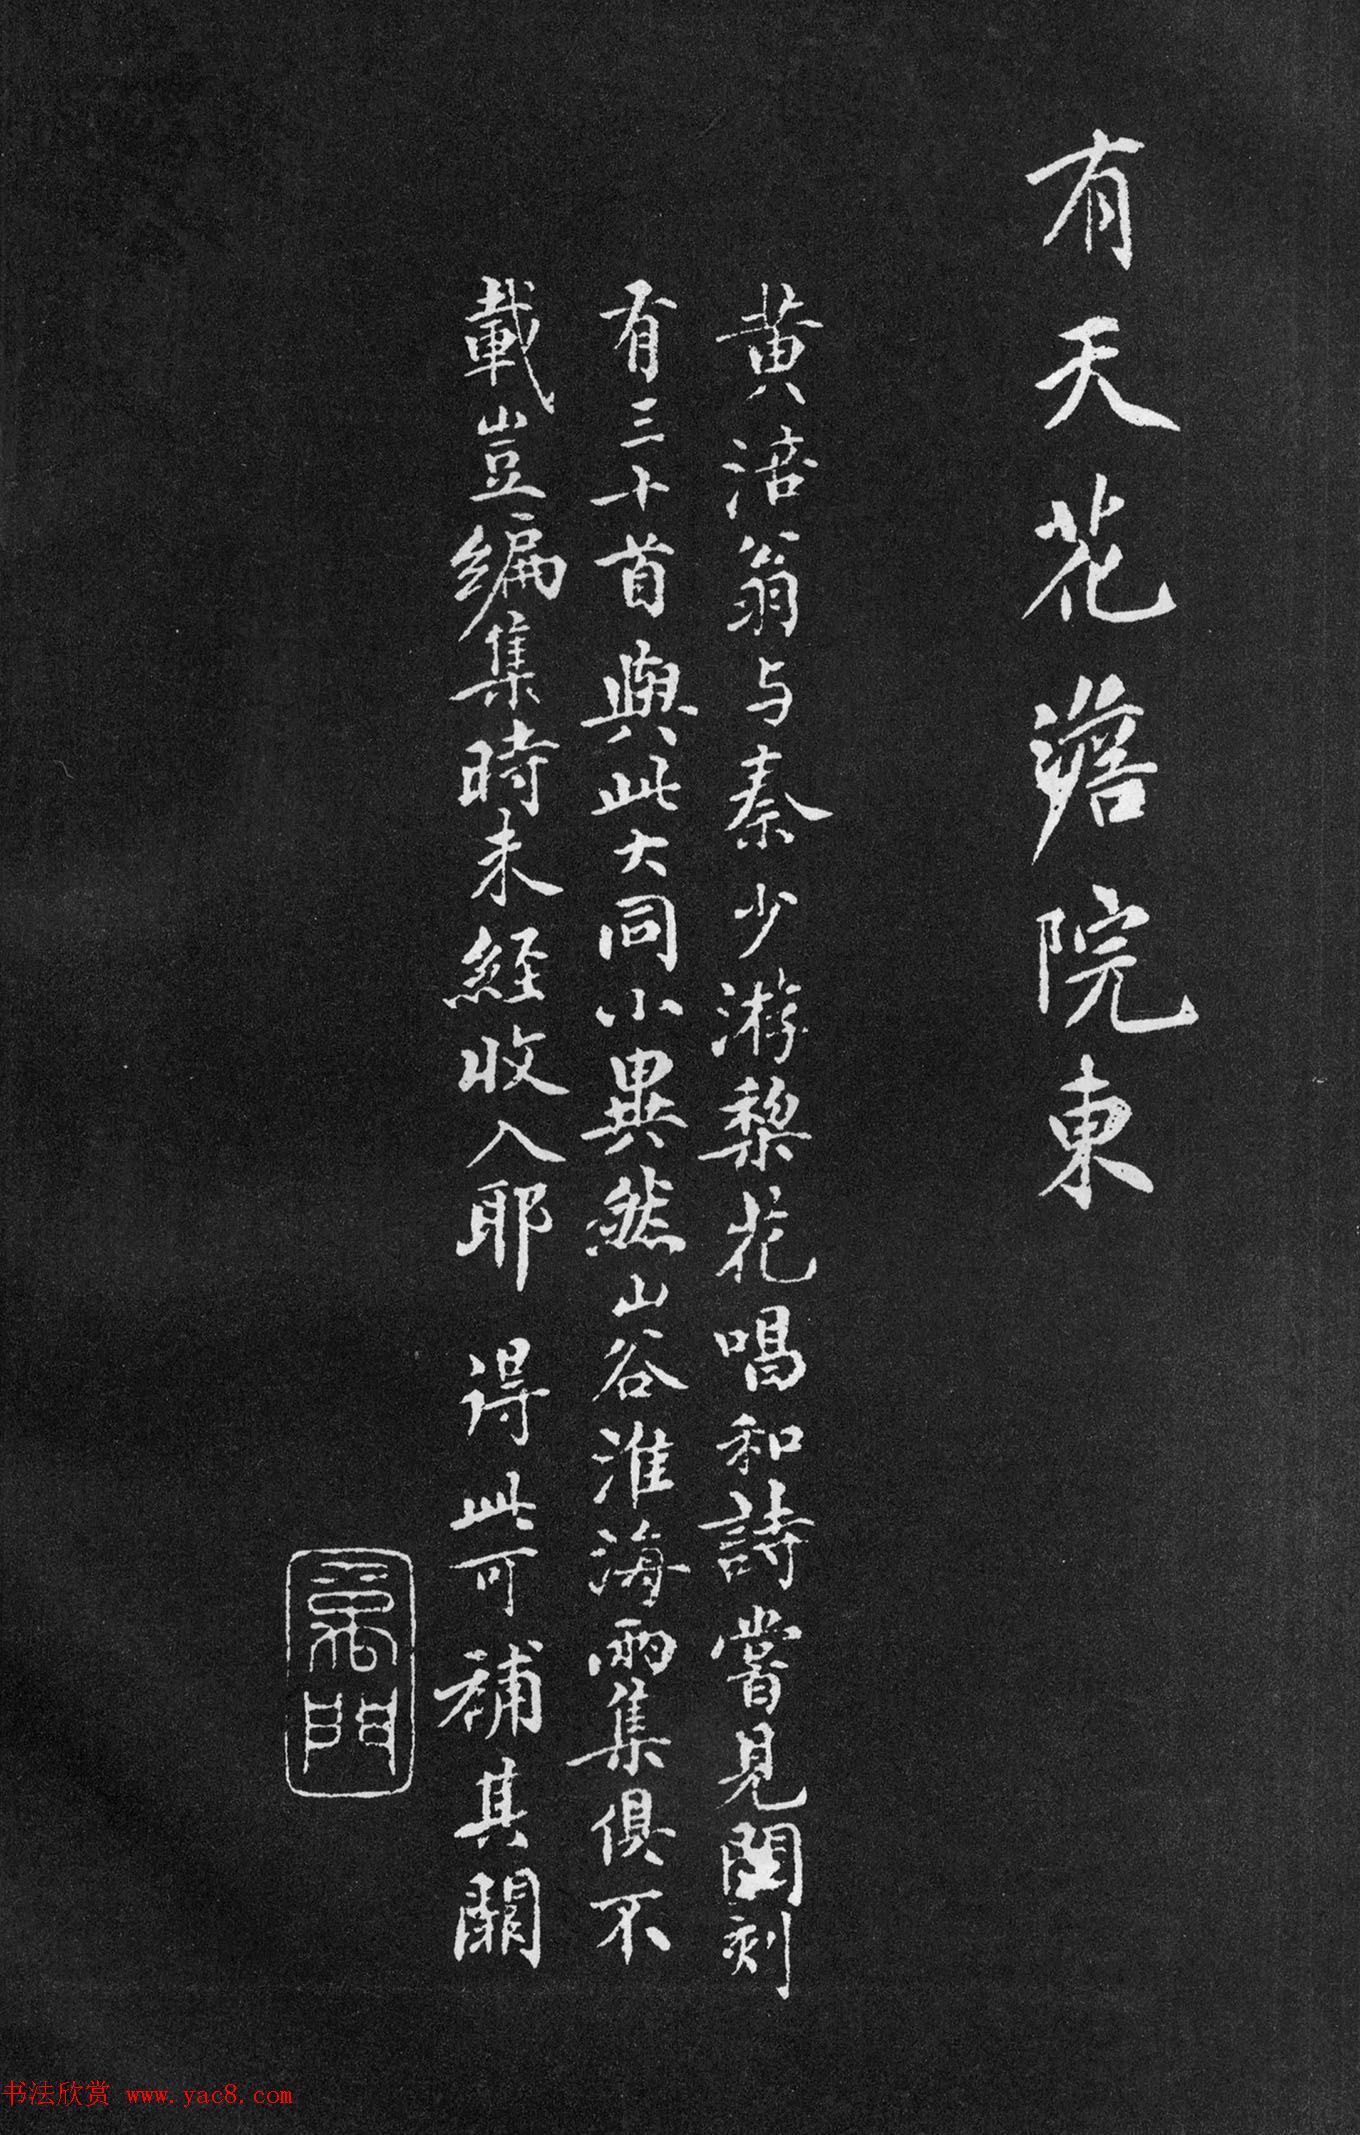 有天花澹院東
黄涪翁与秦少游棃花唱和詩嘗見閣刻
有三十首與此大同小異然山谷淮海兩集俱不
載豈編集時未經收入耶 得此可補其闕
書法欣赏 www.yac8.com